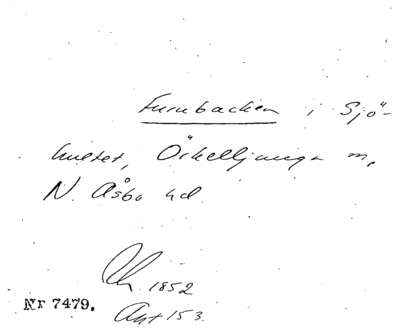 Furubacken i Sjö-
hultet, Örkelljunga sn,
N. Åsbo hd.
1852
Nr 7479.
Akt 153.